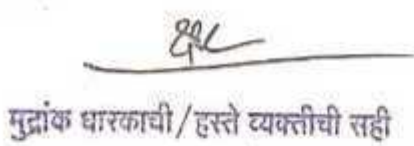 मुद्रांक धारकाची/हस्ते व्यक्तीची सही